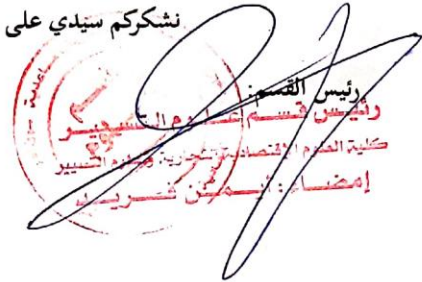 نشكركم سيدي على
رئيس القسم:
رئيس قسم علوم التسيير
كلية العلوم الاقتصادية والتجارية وعلوم التسيير
إمضاء: أيمن